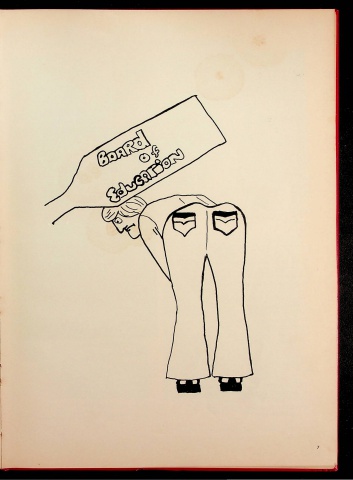 BOARD
of
Education